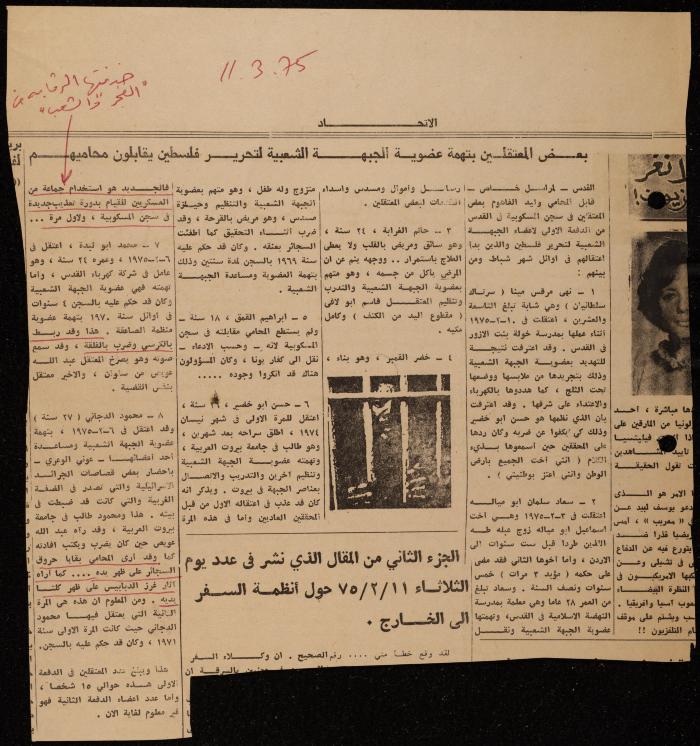 11.3.75
حذفتها الرقابة من
"الفجر" و"الشعب"
الاتحاد
بعض المعتقلين بتهمة عضوية الجبهة الشعبية لتحرير فلسطين يقابلون محاميهم
القدس - لمراسل خاص -
قابل المحامي وليد الفاهوم بعض
المعتقلين في سجن المسكوبية في القدس
من الدفعة الاولى لاعضاء الجبهة
الشعبية لتحرير فلسطين والذين بدأ
اعتقالهم في اوائل شهر شباط. ومن
بينهم :
١ - نهى مرقس مينا ( سرتاك
سلطانيان ) وهي شابة تبلغ التاسعة
والعشرين ، اعتقلت في ١٠-٢-١٩٧٥
أثناء عملها بمدرسة خولة بنت الازور
في القدس. وقد اعترفت نتيجة
للتهديد بعضوية الجبهة الشعبية
وذلك بتجريدها من ملابسها ووضعها
تحت الثلج ، كما هددوها بالكهرباء
والاعتداء على شرفها. وقد اعترفت
بان الذي نظمها هو حسن ابو خضير
وذلك كي يكفوا عن ضربه وكان ردها
على المحققين حين اسمعوها بذيء
الكلام ( انتي اخت الجميع بارض
الوطن وانتي اعتز بوطنيتي )
٢ - سعاد سلمان ابو مياله
اعتقلت في ٣-٢-١٩٧٥ وهي اخت
اسماعيل ابو مياله زوج عبلة طه
الاردن ، واما أخوها الثاني فقد مضى
على حكمه ( مؤبد ٣ مرات ) خمس
سنوات ونصف السنة. وسعاد تبلغ
من العمر ٢٨ عاما وهي معلمة بمدرسة
النهضة الاسلامية في القدس، وتهمتها
عضوية الجبهة الشعبية ونقل
رسائل واموال ومسدس واسداء
لبعض المعتقلين.
٣ - حاتم الغرابة ، ٢٤ سنة ،
وهو سائق ومريض بالقلب ولا يعطى
العلاج باستمرار .. ووجهه ينم عن ان
المرض ياكل من جسمه ، وهو متهم
بعضوية الجبهة الشعبية والتدرب
وتنظيم المعتقل قاسم ابو لافي
( مقطوع اليد من الكتف ) وكامل
مكيه .
٤ - خضر القمبر ، وهو بناء ،
متزوج وله طفل ، وهو متهم بعضوية
الجبهة الشعبية والتنظيم وحيازة
مسدس ، وهو مريض بالقرحة ، وقد
ضرب أثناء التحقيق كما اطفئت
السجائر بعنقه . وقد كان حكم عليه
سنة ١٩٦٩ بالسجن لمدة سنتين وذلك
بتهمة العضوية ومساعدة الجبهة
الشعبية .
٥ - ابراهيم القمق ، ١٨ سنة .
ولم يستطع المحامي مقابلته في سجن
المسكوبية لانه - وحسب الادعاء -
نقل الى كفار يونا ، وكان المسؤولون
هناك قد انكروا وجوده ......
٦ - حسن ابو خضير ، سنة ،
اعتقل للمرة الاولى في شهر نيسان
١٩٧٤ ، اطلق سراحه بعد شهرين ،
وهو طالب في جامعة بيروت العربية ،
وتهمته عضوية الجبهة الشعبية
وتنظيم آخرين والتدريب والاتصال
بعناصر الجبهة في بيروت . ويذكر انه
كان قد عذب في اعتقاله الاول من قبل
المحققين العاديين واما في هذه المرة
فالجديد هو استخدام جماعة من
العسكريين للقيام بدورة تعذيب جديدة
في سجن المسكوبية ، ولاول مرة ...
٧ - محمد ابو لبدة ، اعتقل في
٦-٢-١٩٧٥، وعمره ٢٤ سنة ، وهو
عامل في شركة كهرباء القدس ، واما
تهمته فهي عضوية الجبهة الشعبية
وكان قد حكم عليه بالسجن ٤ سنوات
في اوائل سنة ٩٧٠ بتهمة عضوية
منظمة الصاعقة . هذا وقد ربط
بالكرسي وضرب بالفلقة ، وقد سمع
صوته وهو يصرخ المعتقل عبد الله
عويص من سلوان ، والاخير معتقل
بنفس القضية .
٨ - محمود الدجاني ( ٢٧ سنة )
وقد اعتقل في ٦-٢-١٩٧٥، بتهمة
عضوية الجبهة الشعبية ومساعدة
أحد اعضائها - عوني الوعري -
باحضار بعض قصاصات الجرائد
الاسرائيلية والتي تصدر في الضفة
الغربية والتي كانت قد ضبطت في
بيته . وهذا ومحمود طالب في جامعة
بيروت العربية ، وقد رآه عبد الله
عويص حين كان يضرب ويكتب افادته
كما وقد أرى المحامي بقايا حروق
السجائر على ظهر يده .... كما أراه
آثار غرز الدبابيس على ظهر كلتا
يديه . ومن المعلوم ان هذه هي المرة
الثانية التي يعتقل فيها محمود
الدجاني حيث كانت المرة الاولى سنة
١٩٧١ ، وكان قد حكم عليه بالسجن.
هذا ويبلغ عدد المعتقلين في الدفعة
الاولى هذه حوالي ١٥ شخصا ،
واما عدد اعضاء الدفعة الثانية فهو
غير معلوم لغاية الان .
الجزء الثاني من المقال الذي نشر في عدد يوم
الثلاثاء ٧٥/٢/١١ حول أنظمة السفر
الى الخارج .
لقد وقع خطأ مني .... رقم الصحيح . ان وكلاء السفر
ها مباشرة ، احمد
لونيا من المارقين على
تأييد للمشاهدين
ت تقول الحقيقة
الامر هو الذى
دعو يوسف لبيد عن
« معريب » ، امس
يضا قذرا ضد
يتورع فيه عن الدفاع
في تشيلي وعن
كبها الاميركيون في
النظرة البيضاء
عوب آسيا وافريقيا .
ب ويشتم على موقف
ام التلفزيون !!